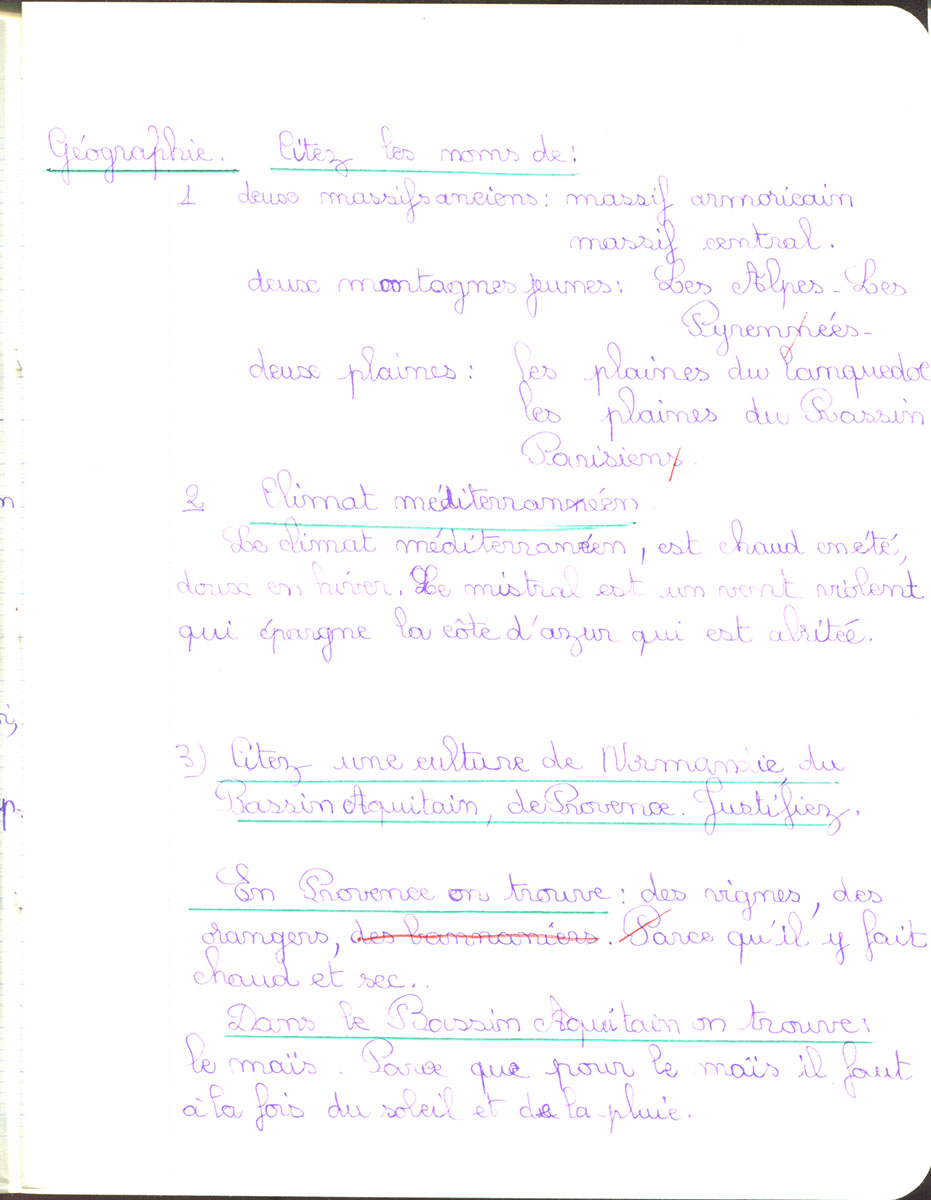 Géographie. Citez les noms de:
1 deux massifs anciens: massif armoricain
massif central.
deux montagnes jeunes: Les Alpes - Les
Pyrennées -
deux plaines: les plaines du Languedoc
les plaines du Bassin
Parisiens.
2 Climat méditerrannéen
Le climat méditerranéen, est chaud en été,
doux en hiver. Le mistral est un vent violent
qui épargne la côte d'azur qui est abritée.
3) Citez une culture de Normandie du
Bassin Aquitain, de Provence. Justifiez.
En Provence on trouve: des vignes, des
orangers, des bannaniers. Parce qu'il y fait
chaud et sec..
Dans le Bassin Aquitain on trouve:
le maïs. Parce que pour le maïs il faut
à la fois du soleil et de la pluie.
n
i,
p.